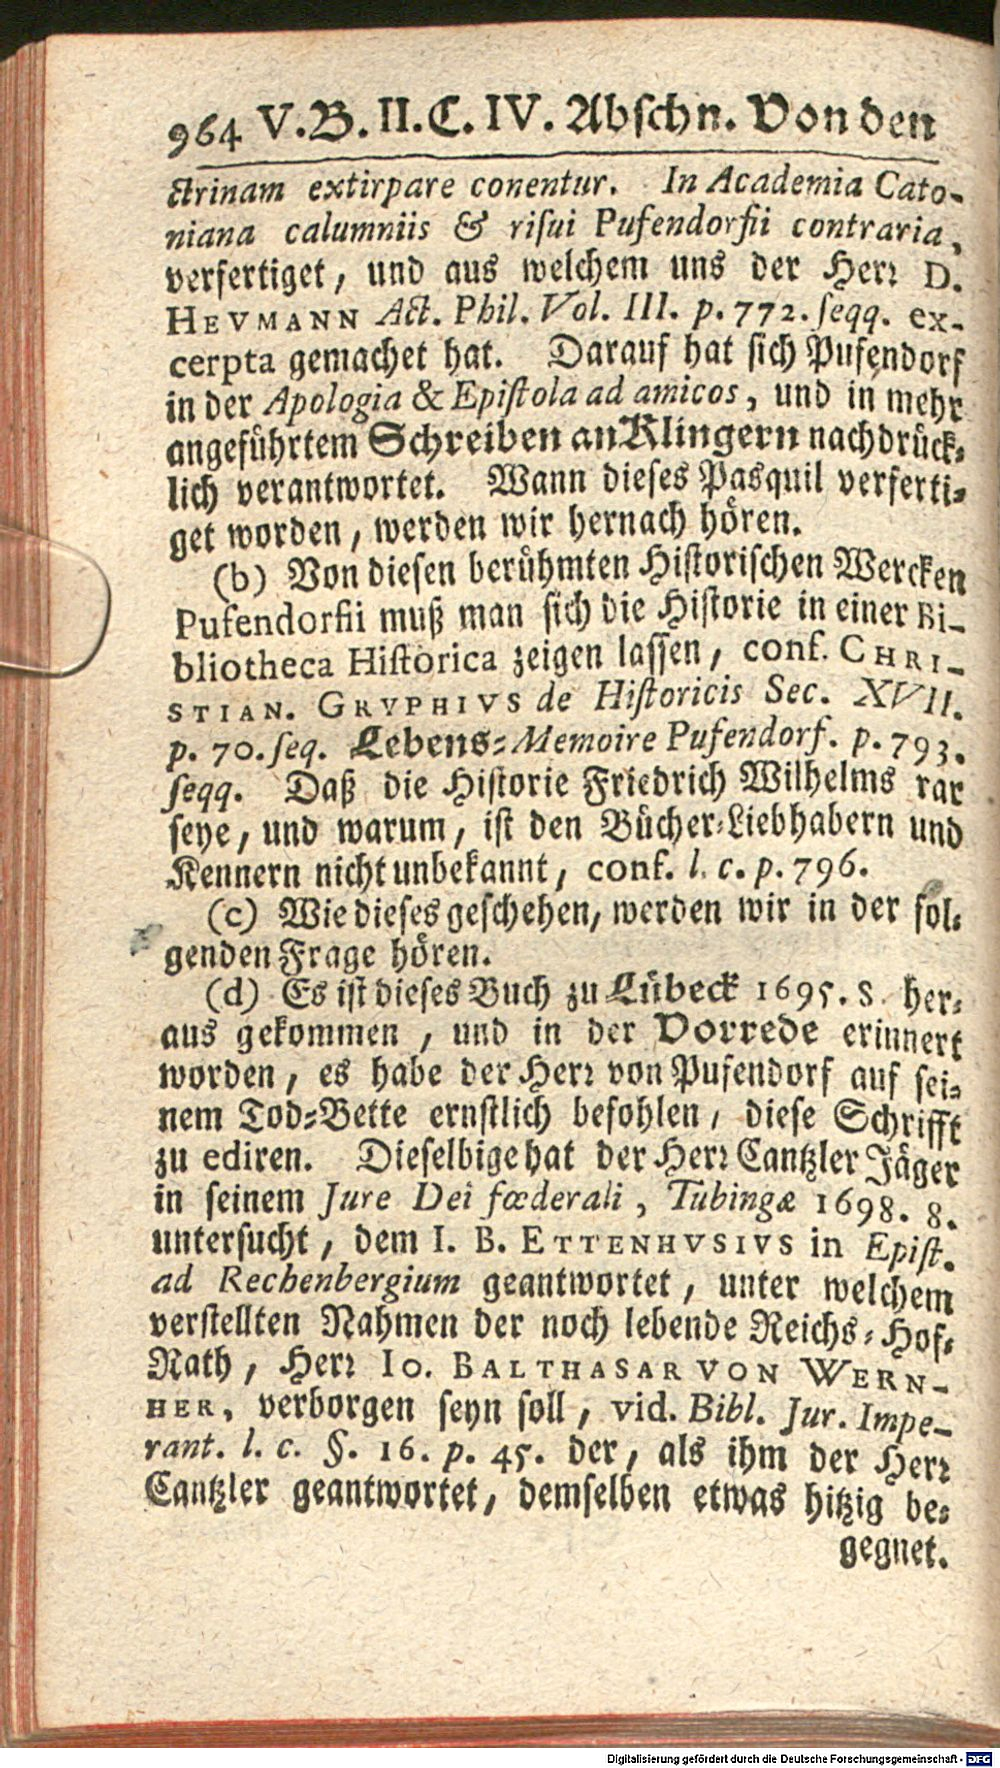 964 V. B. II. C. IV. Abschn. Von den
ctrinam extirpare conentur. In Academia Cato-
niana calumniis & risui Pufendorfii contraria,
verfertiget, und aus welchem uns der Herr D.
HEVMANN Act. Phil. Vol. III. p. 772. seqq. ex-
cerpta gemachet hat. Darauf hat sich Pufendorf
in der Apologia & Epistola ad amicos, und in mehr
angeführtem Schreiben an Klingern nachdrück-
lich verantwortet. Wann dieses Pasquil verferti-
get worden, werden wir hernach hören.
(b) Von diesen berühmten Historischen Wercken
Pufendorfii muß man sich die Historie in einer Bi-
bliotheca Historica zeigen lassen, conf. CHRI-
STIAN. GRVPHIVS de Historicis Sec. XVII.
p. 70. seq. Lebens-Memoire Pufendorf. p. 793.
seqq. Daß die Historie Friedrich Wilhelms rar
seye, und warum, ist den Bücher-Liebhabern und
Kennern nicht unbekannt, conf. l. c. p. 796.
(c) Wie dieses geschehen, werden wir in der fol-
genden Frage hören.
(d) Es ist dieses Buch zu Lübeck 1695. 8. her-
aus gekommen, und in der Vorrede erinnert
worden, es habe der Herr von Pufendorf auf sei-
nem Tod-Bette ernstlich befohlen, diese Schrifft
zu ediren. Dieselbige hat der Herr Cantzler Jäger
in seinem Jure Dei fœderali, Tubingæ 1698. 8.
untersucht, dem I. B. ETTENHVSIVS in Epist.
ad Rechenbergium geantwortet, unter welchem
verstellten Nahmen der noch lebende Reichs-Hof-
Rath, Herr IO. BALTHASAR VON WERN-
HER, verborgen seyn soll, vid. Bibl. Jur. Impe-
rant. l. c. §. 16. p. 45. der, als ihm der Herr
Cantzler geantwortet, demselben etwas hitzig be-
gegnet.
Digitalisierung gefördert durch die Deutsche Forschungsgemeinschaft - DFG